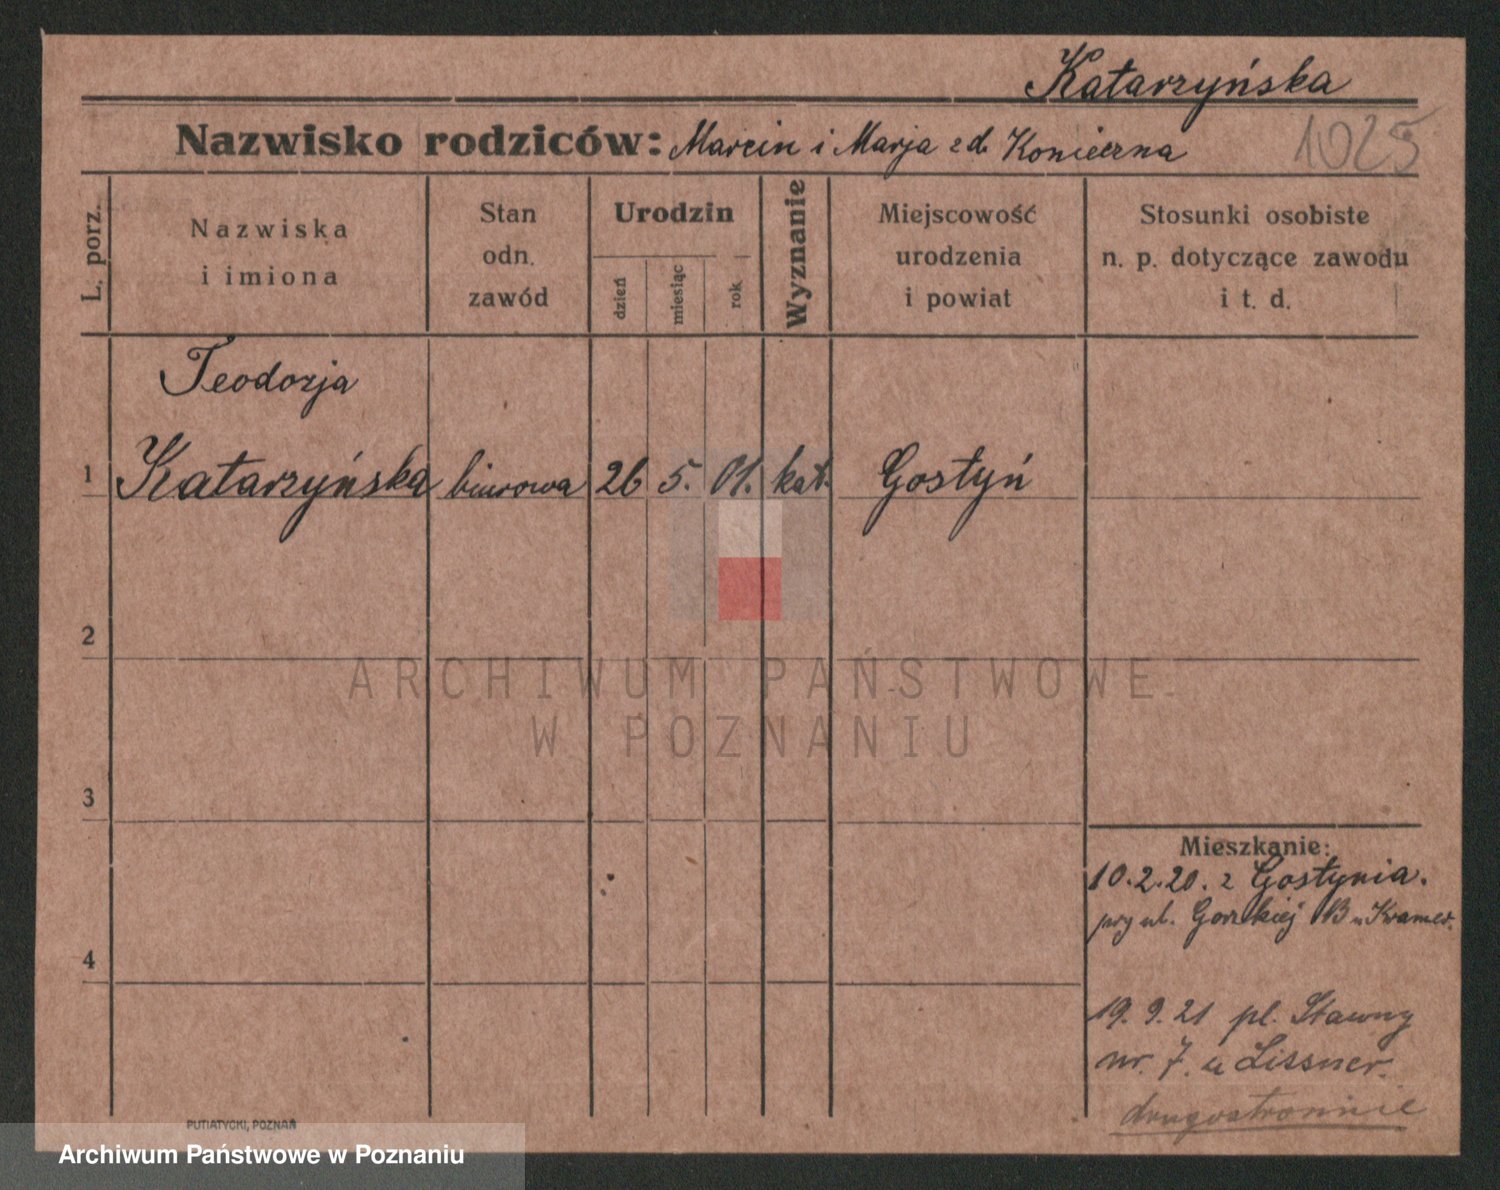 Katarzyńska
Nazwisko rodziców: Marcin i Marja z d. Konieczna
1025
L. porz.
Nazwiska
i imiona
Stan
odn.
zawód
Urodzin
dzień
miesiąc
rok
Wyznanie
Miejscowość
urodzenia
i powiat
Stosunki osobiste
n. p. dotyczące zawodu
i t. d.
Teodozja
1 Katarzyńska biurowa 26 5. 01. kat. Gostyń
2
ARCHIWUM PAŃSTWOWE
W POZNANIU
3
Mieszkanie:
10.2.20. z Gostynia.
przy ul. Gorzkiej 13 u Kramer.
4
19.9.21 pl. Stawny
nr. 7. u Lissner.
PUTIATYCKI, POZNAŃ
Archiwum Państwowe w Poznaniu